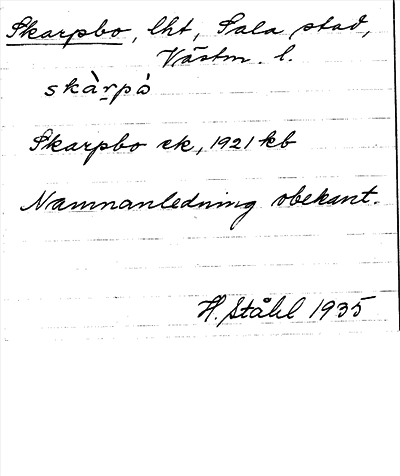 Skarpbo, lht, Sala stad,
Västm. l.
skàr̠pò
Skarpbo ek, 1921 kb
Namnanledning obekant.
H. Ståhl 1935